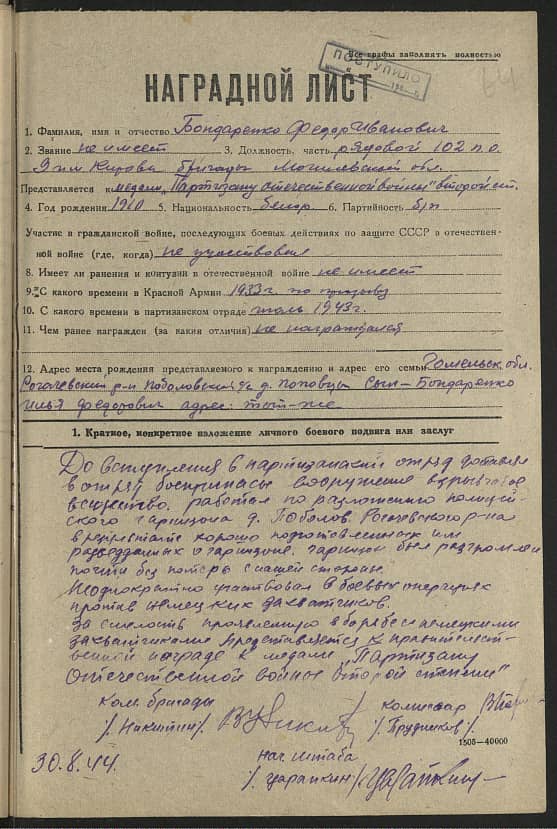 Все графы заполнять полностью
ПОСТУПИЛО
НАГРАДНОЙ ЛИСТ
1. Фамилия, имя и отчество Бондаренко Федор Иванович
2. Звание не имеет 3. Должность, часть рядовой 102 п.о.
9 им Кирова бригады Могилевской обл.
Представляется к медали "Партизану отечественной войны" второй ст.
4. Год рождения 1910 5. Национальность белор 6. Партийность б/п
Участие в гражданской войне, последующих боевых действиях по защите СССР и отечествен-
ной войне (где, когда) не участвовал
8. Имеет ли ранения и контузии в отечественной войне не имеет
9. С какого времени в Красной Армии 1933г. по призыву
10. С какого времени в партизанском отряде июль 1943г.
11. Чем ранее награжден (за какия отличия) не награждался
12. Адрес места рождения представляемого к награждению и адрес его семьи Гомельск. обл.
Рогачевский р-н Поболовский с/с д. Поповцы Сын - Бондаренко
Илья Федорович адрес: тот-же
1. Краткое, конкретное изложение личного боевого подвига или заслуг
До вступления в партизанский отряд доставлял
в отряд боеприпасы вооружение взрывчатое
вещество. работал по разложению полицей-
ского гарнизона д. Поболов. Рогачевского р-на
в результате хорошо подготовленных им
разведданных о гарнизоне. гарнизон был разгромлен
почти без потерь с нашей стороны.
Неоднократно участвовал в боевых операциях
против немецких захватчиков.
За смелость проявленную в борьбе с немецкими
захватчиками представляется к правительст-
венной награде к медали "Партизану
Отечественной войны второй степени"
Ком. бригады комиссар
/Никитин/ /Прудников/
1505-40000
30.8.44. нач штаба
/Царапкин/